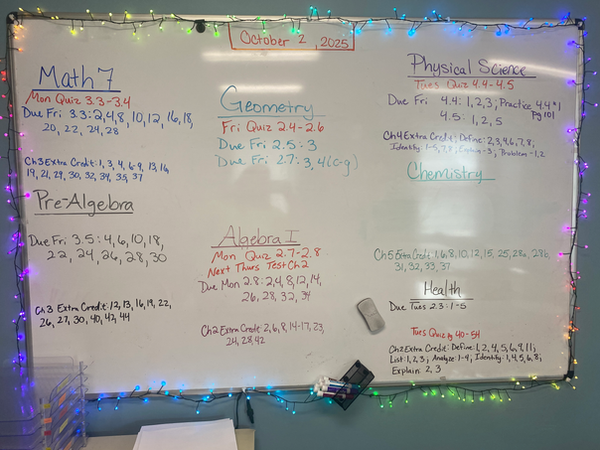 October 2, 2025
Math 7
Mon Quiz 3.3-3.4
Due Fri 3.3: 2,4,8,10,12,16,18,
20, 22, 24, 28
Ch3 Extra Credit: 1, 3, 4, 6-9, 13, 16,
19, 21, 29, 30, 32, 34, 35, 37
Pre-Algebra
Due Fri 3.5: 4, 6, 10, 18,
22, 24, 26, 28, 30
Ch3 Extra Credit: 12, 13, 16, 19, 22,
26, 27, 30, 40, 42, 44
Geometry
Fri Quiz 2.4-2.6
Due Fri 2.5: 3
Due Fri 2.7: 3, 4(c-g)
Algebra I
Mon Quiz 2.7-2.8
Next Thurs Test Ch2
Due Mon 2.8: 2,4,8,12,14,
26, 28, 32, 34
Ch2 Extra Credit 2, 6, 8, 14-17, 23,
24, 28, 42
Physical Science
Tues Quiz 4.4-4.5
Due Fri 4.4: 1, 2, 3; Practice 4.4 #1
Pg 101
4.5: 1, 2, 5
Ch4 Extra Credit: Define: 2, 3, 4, 6, 7, 8;
Identify: 1-5, 7, 8; Explain-3; Problems-1, 2
Chemistry
Ch5 Extra Credit: 1, 6, 8, 10, 12, 15, 25, 28a, 28b,
31, 32, 33, 37
Health
Due Tues 2.3: 1-5
Tues Quiz pg 40-54
Ch2 Extra Credit: Define: 1, 2, 4, 5, 6, 9, 11;
List: 1, 2, 3; Analyze: 1-4; Identify: 1, 4, 5, 6, 8;
Explain: 2, 3